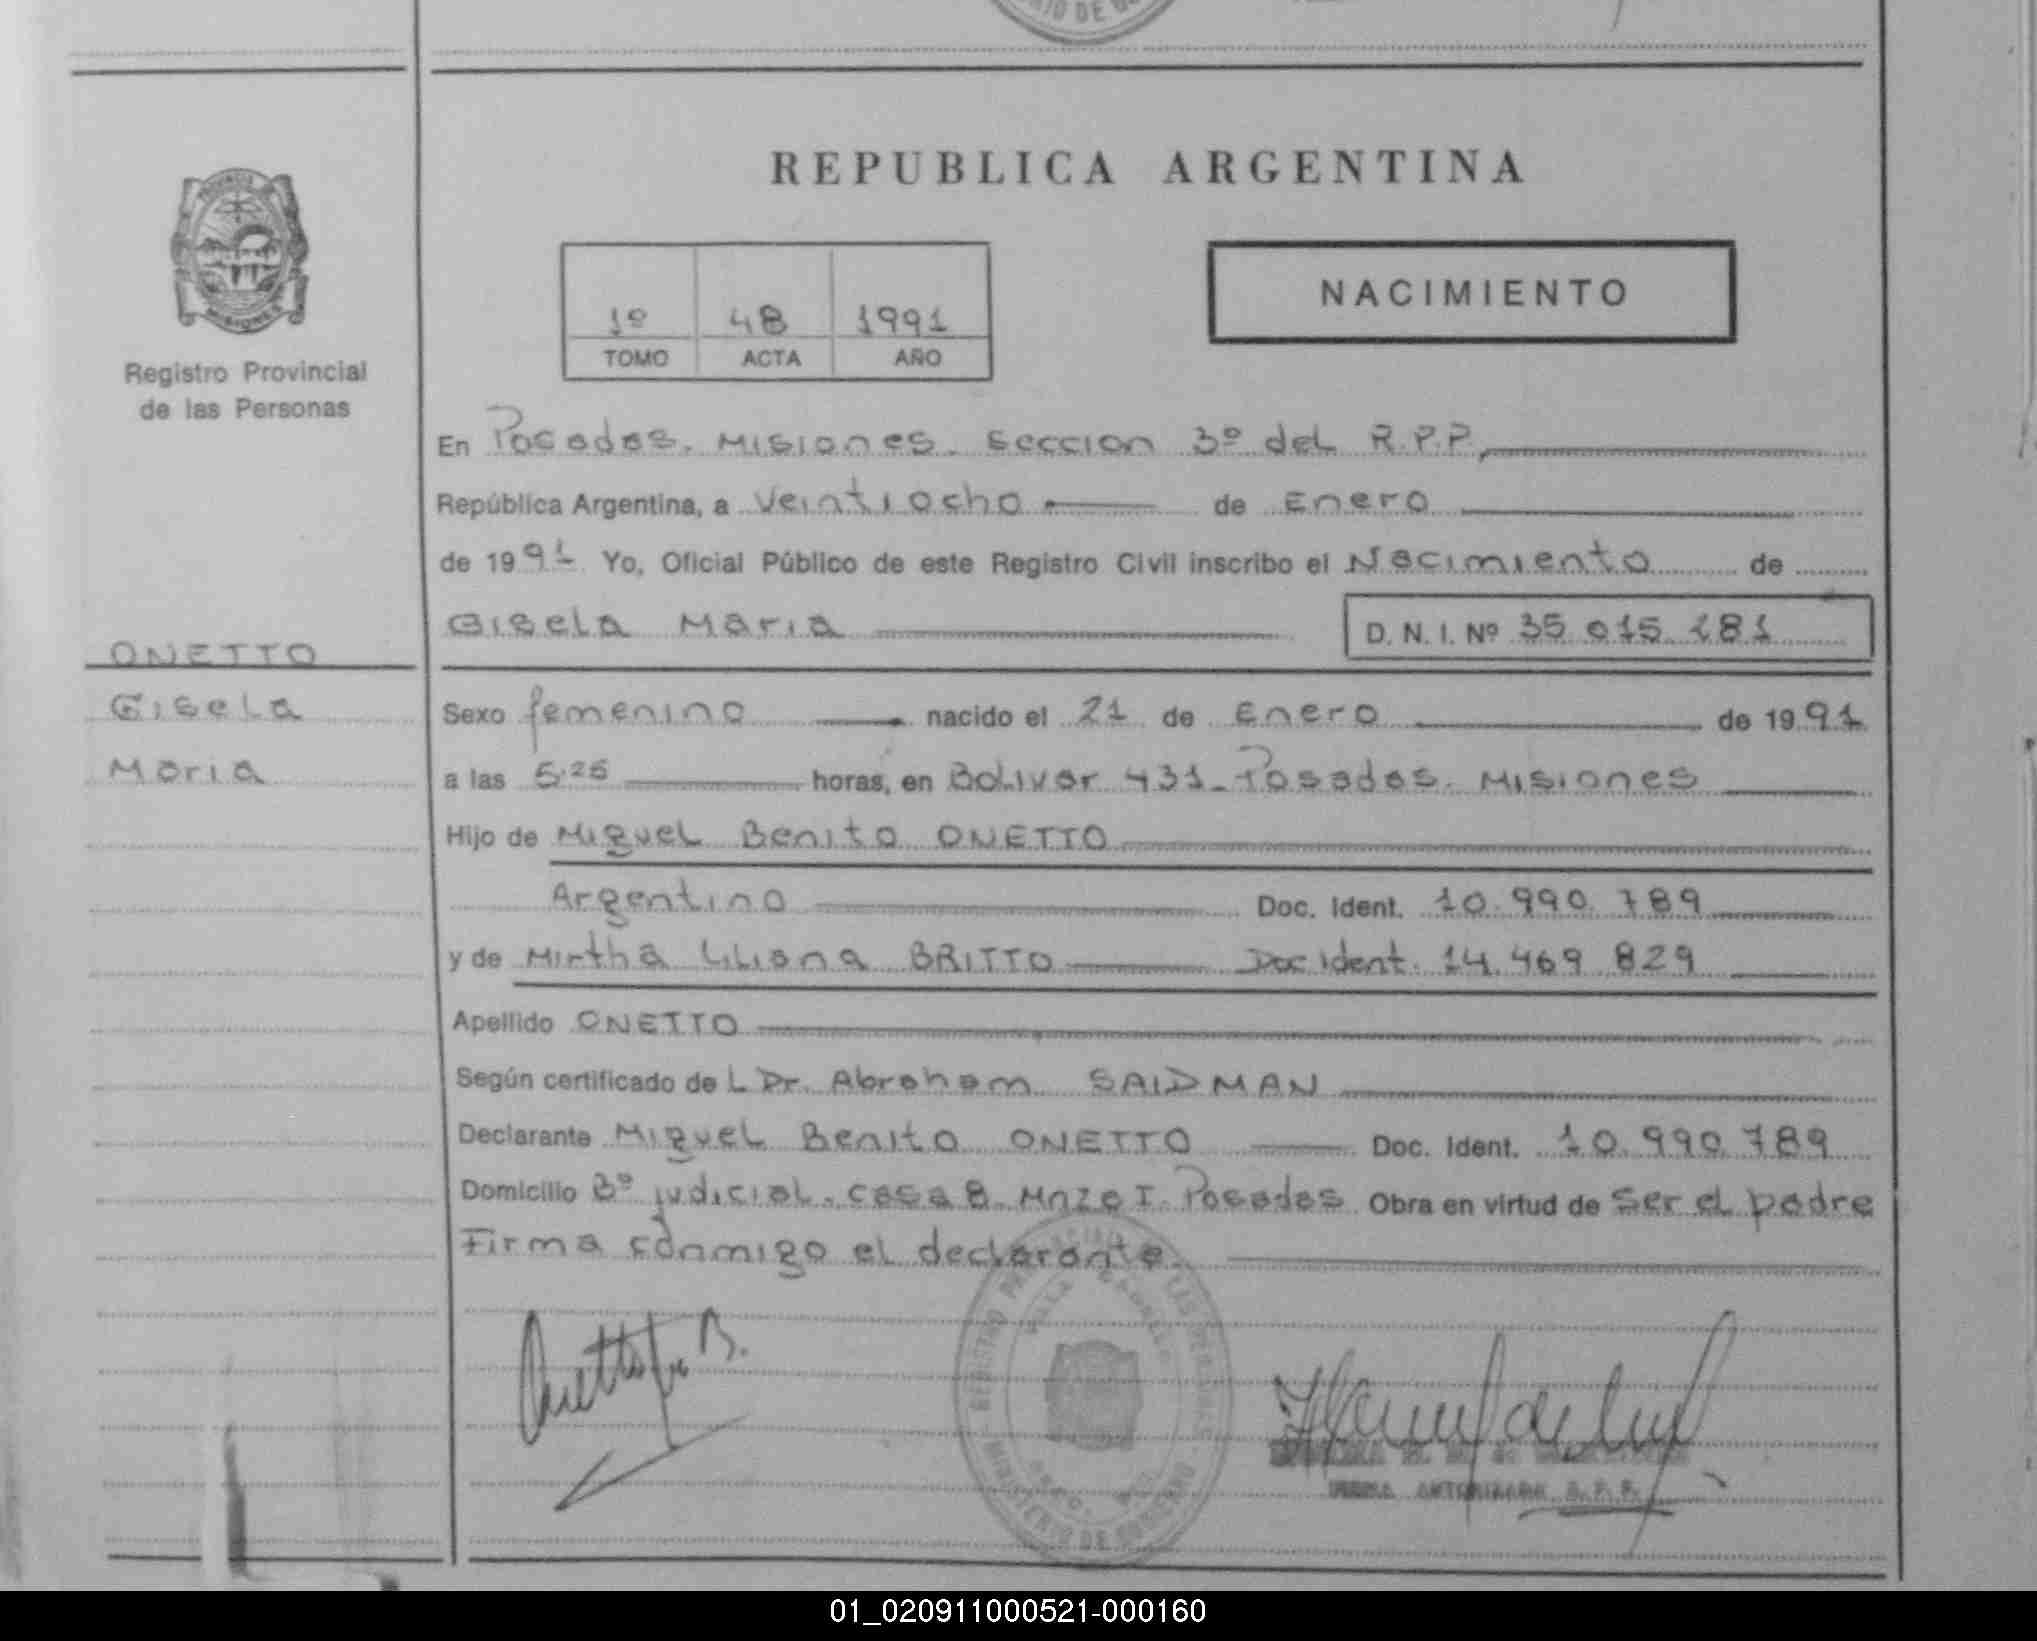 REPUBLICA ARGENTINA
NACIMIENTO
1º 48 1991
TOMO ACTA AÑO
PROVINCIA DE
MISIONES
Registro Provincial
de las Personas
En Posadas. Misiones. Seccion 3º del R.P.P.
República Argentina, a Veintiocho de Enero
de 1991 Yo, Oficial Público de este Registro Civil inscribo el Nacimiento de
Gisela Maria D. N. I. Nº 35 015 181
ONETTO
Gisela
Maria
Sexo femenino nacido el 21 de Enero de 1991
a las 5:25 horas, en Bolivar 431 - Posadas. Misiones
Hijo de Miguel Benito ONETTO
Argentino Doc. Ident. 10.990.789
y de Mirtha Liliana BRITTO Doc Ident. 14.469 829
Apellido ONETTO
Según certificado de L Dr. Abraham SAIDMAN
Declarante Miguel Benito ONETTO Doc. Ident. 10.990.789
Domicilio Bº judicial. casa 8. Mnza I. Posadas. Obra en virtud de ser el padre
Firma conmigo el declarante.
REGISTRO PROVINCIAL DE LAS PERSONAS
MINISTERIO DE GOBIERNO
VILLA
FIRMA AUTORIZADA R.P.P.
01_020911000521-000160